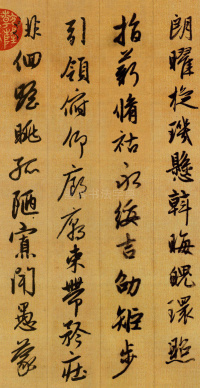 朗曜旋璣懸斡晦魄環照
指薪脩祜永綏吉劭矩步
引領俯仰廊廟束帶矜莊
俳佪瞻眺孤陋寡聞愚蒙